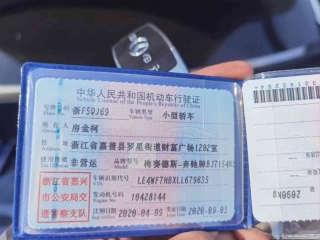 中华人民共和国机动车行驶证
Vehicle License of the People's Republic of China
号牌号码 浙F5QJ69 车辆类型 小型轿车
Plate No. Vehicle Type
所有人 房金柯
Owner
住址 浙江省嘉善县罗星街道财富广场1292室
Address
使用性质 非营运 品牌型号 梅赛德斯-奔驰牌BJ7154
Model
浙江省嘉兴
市公安局交
通警察支队
车辆识别代号 LE4WF7HBXLL679635
VIN
发动机号码 10428144
注册日期 2020-04-09 发证日期 2020-09-03
2090kg